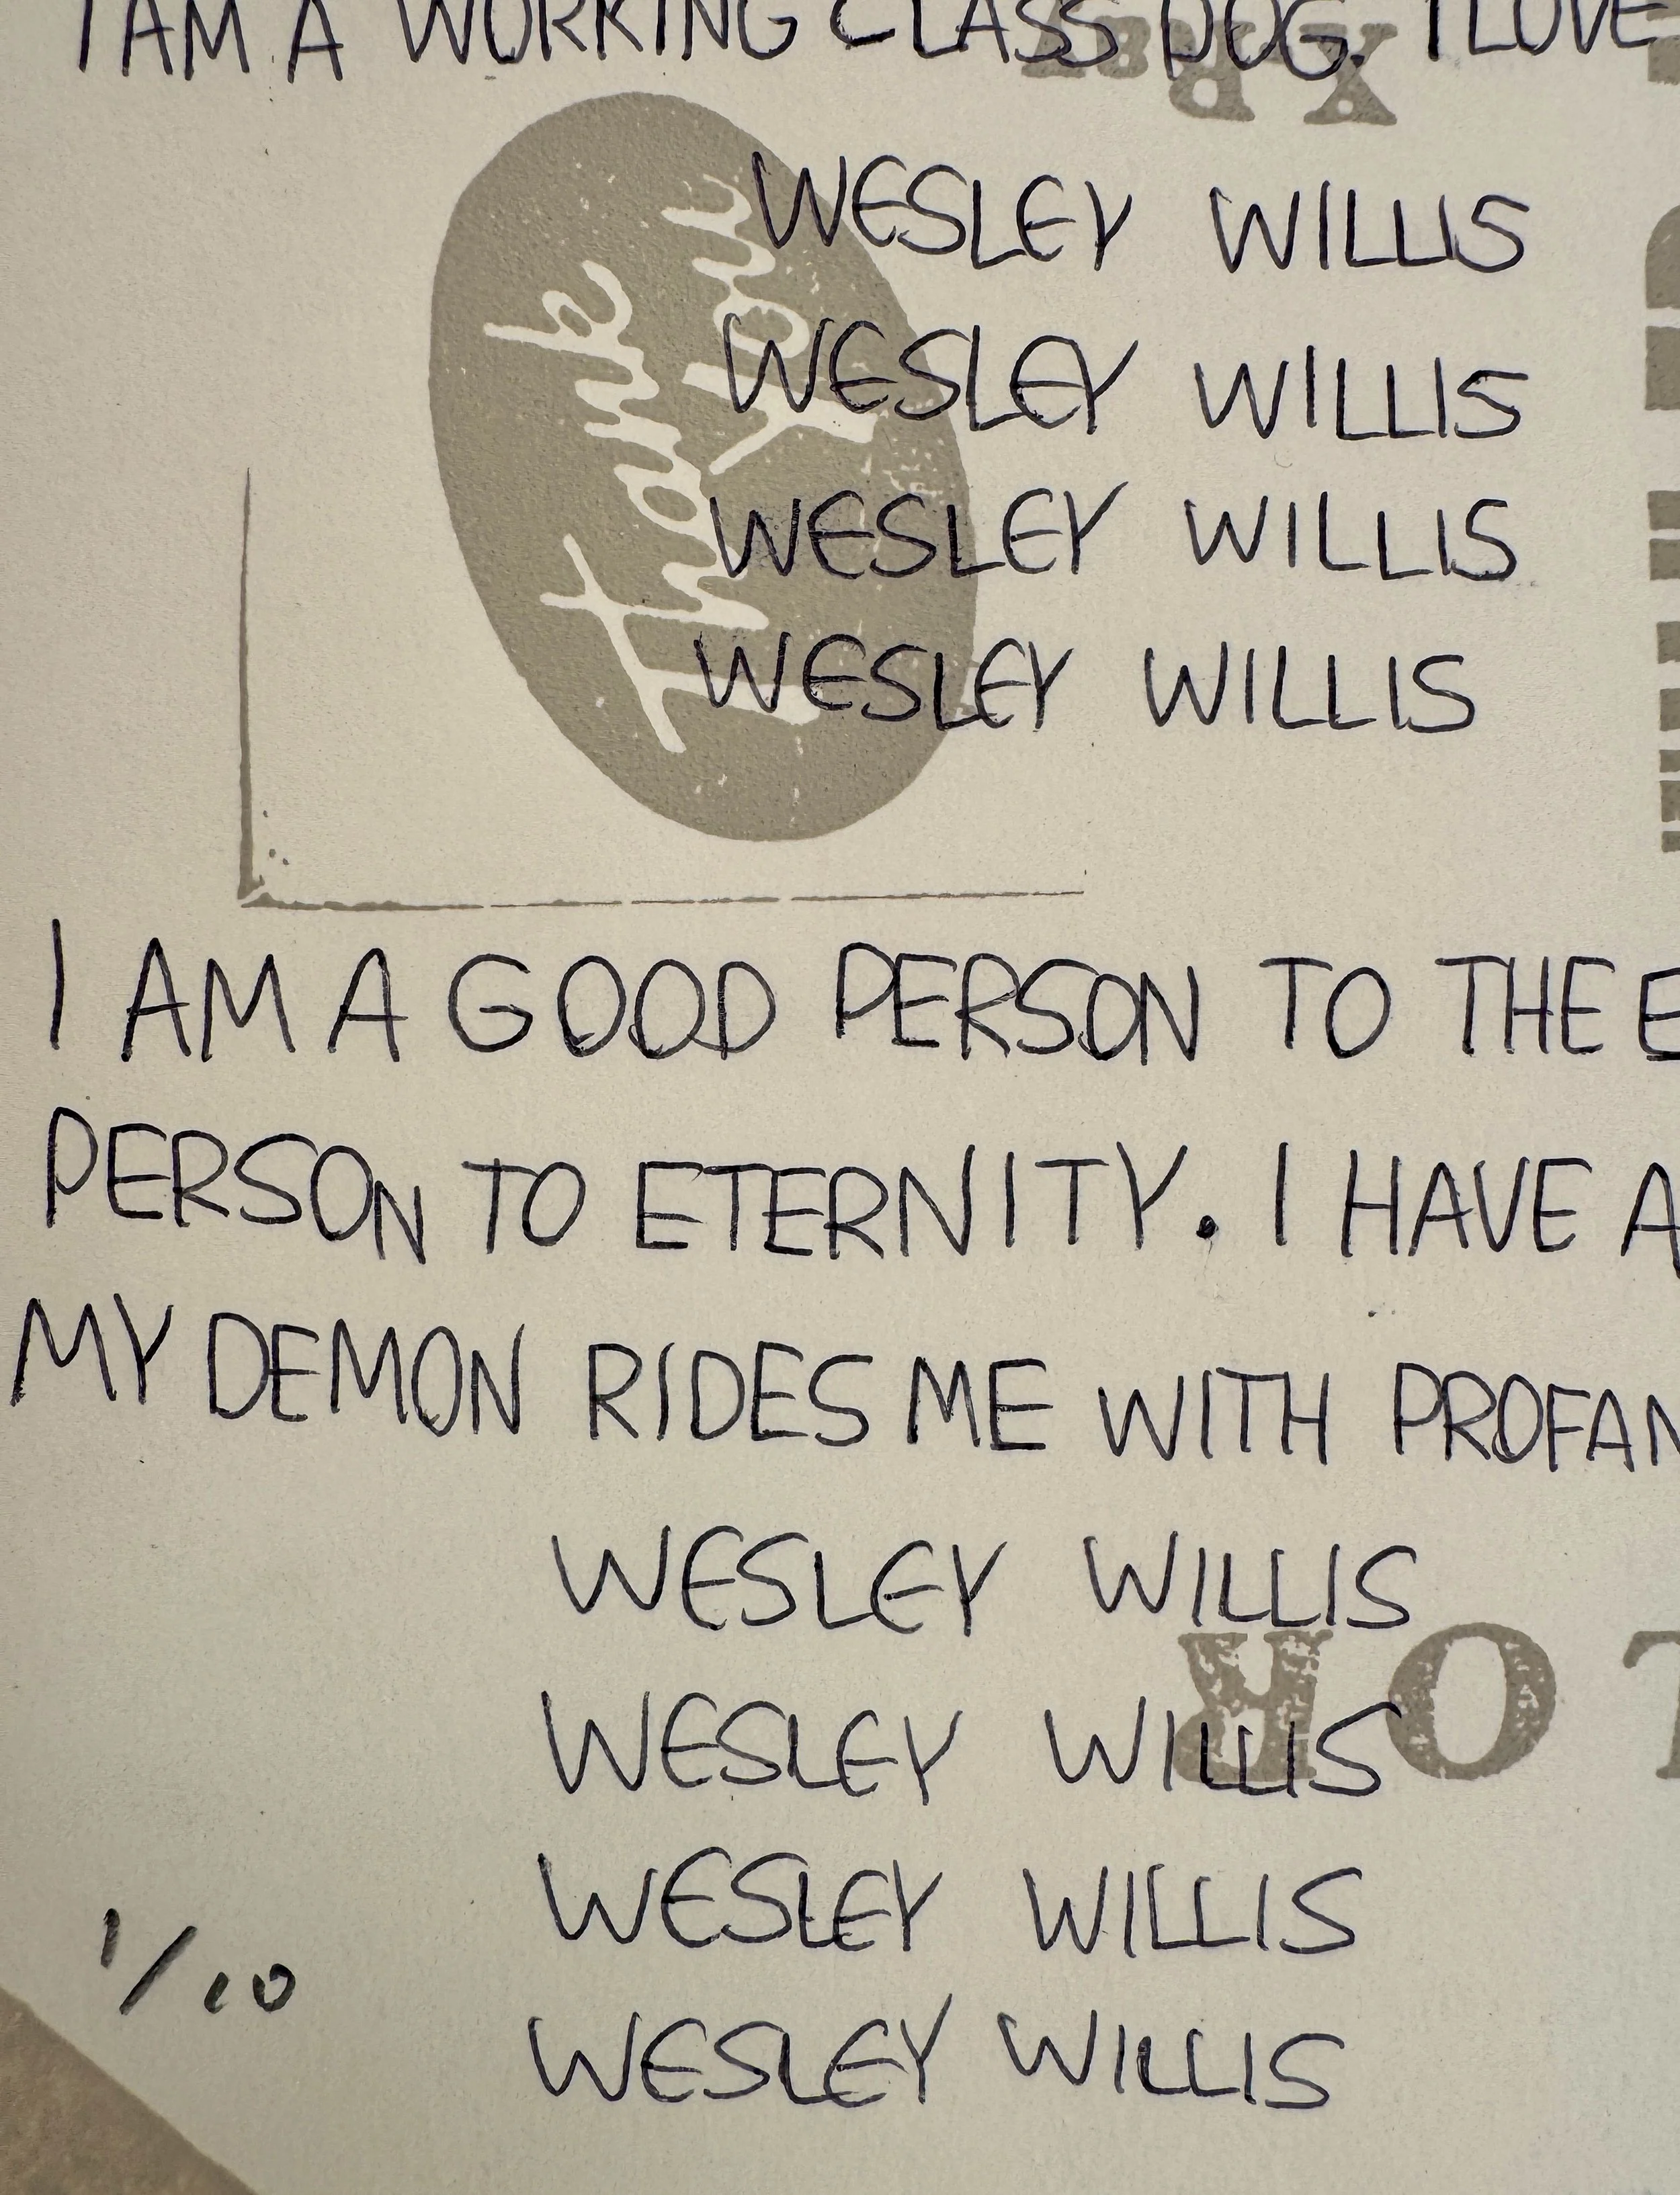 I AM A WORKING CLASS DOG. I LOVE
WESLEY WILLIS
WESLEY WILLIS
WESLEY WILLIS
WESLEY WILLIS
Thank
You
I AM A GOOD PERSON TO THE E
PERSON TO ETERNITY. I HAVE A
MY DEMON RIDES ME WITH PROFAN
WESLEY WILLIS
WESLEY WILLIS
WESLEY WILLIS
WESLEY WILLIS
1/10